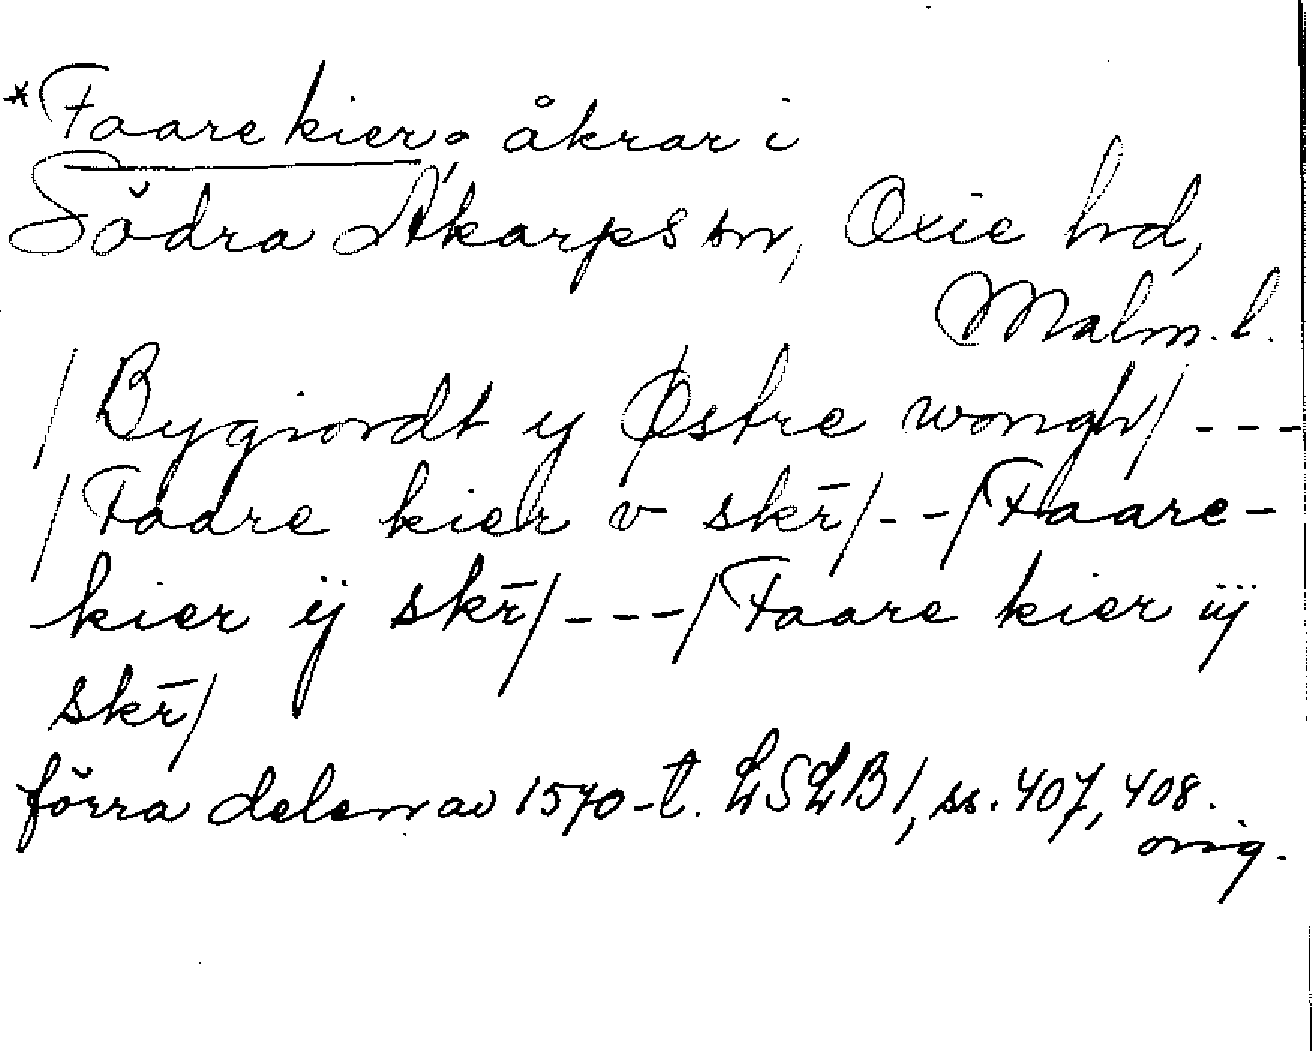 *Faarekier; åkrar i
Södra Åkarps sn, Oxie hd,
Malm. l.
/ Bygiordt y Østre wongh/ ---
/ Faare kier v skr̄/ --/ Faare-
kier ij skr̄/ ---/ Faare kier iij
skr̄/
förra delen av 1570-t. LSLB 1, ss. 407, 408.
orig.